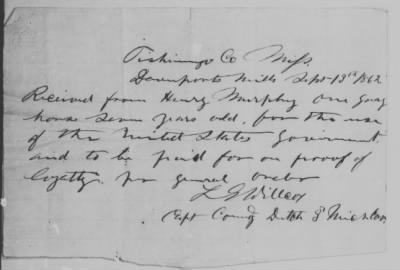 Tishimingo Co Miss.
Davenports Mills Sept 13th 1862
Received from Henry Murphy One gray
horse seven years old, for the use
of the United States Goverment
and to be paid for on proof of
loyalty. per general order
L G Willcox
Capt Comdg Detch 3 Mich Cav